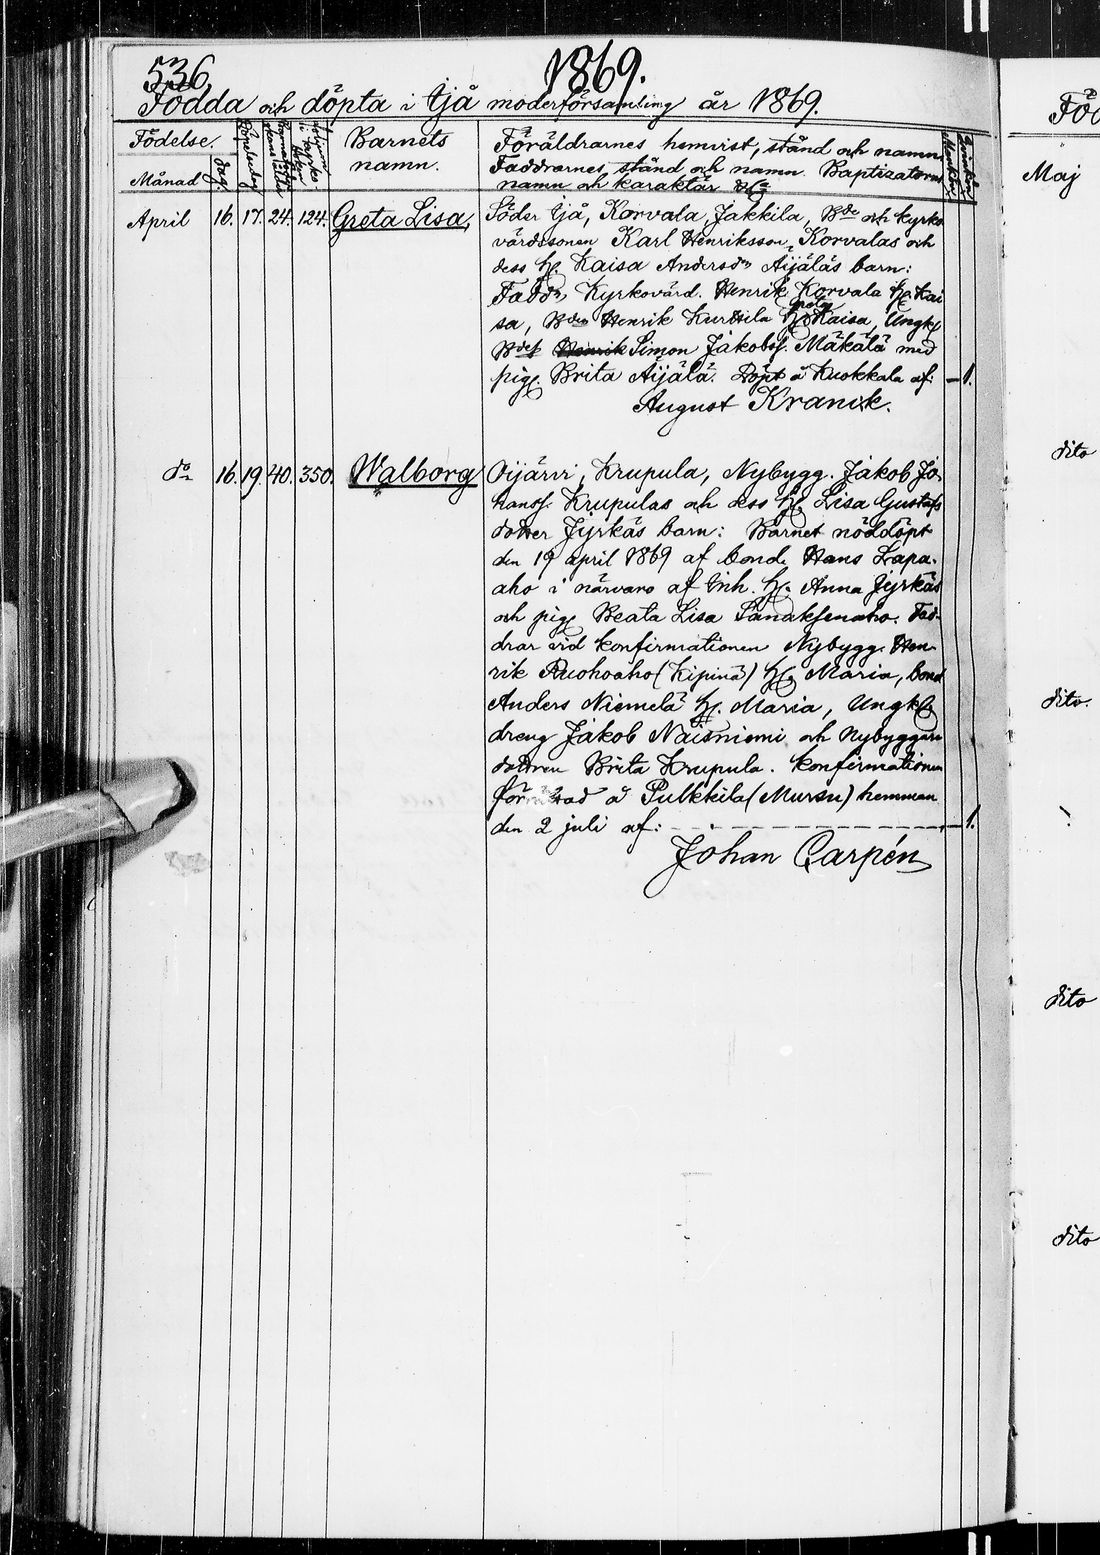 536
1869.
Födda och döpta i Ijå moderförsamling år 1869.
Födelse.
Månad
dag.
Barnets
namn.
Föräldrarnes hemvist, stånd och namn.
Faddrarnes stånd och namn. Baptisatorns
namn och karaktär
April 16. 17. 24. 124. Greta Lisa,
Söder Ijå, Korvala, Jakkila, Bde och kyrko
värdssonen Karl Henriksson Korvalas och
dess H. Kaisa Andersdr Äijäläs barn:
Faddr, Kyrkovärd. Henrik Korvala H. Kai
sa, Bden Henrik Kurttila H. Greta Kaisa, Ungk.
Bdes. Henrik Simon Jakobss. Mäkälä med
pig. Brita Äijälä. Döpt å Kuokkala af: — 1.
August Kranck.
do 16. 19. 40. 350. Walborg
Oijärvi, Krupula, Nybygg. Jakob Jo
hanss. Krupulas och dess H. Lisa Gustafs
dotter Jyrkäs barn: Barnet nöddöpt
den 19 april 1869 af bond. Hans Lapa-
aho i närvaro af Inh. H. Anna Jyrkäs
och pig. Beata Lisa Sanaksenaho. Fad-
drar vid konfirmationen Nybygg. Hen-
rik Ruohoaho (Kipinä) H. Maria, bond
Anders Niemelä H. Maria, Ungk.
dreng Jakob Naisniemi och Nybyggare
dottren Brita Krupula. Konfirmationen
förrättad å Pulkkila (Mursu) hemman
den 2 juli af: — 1.
Johan Carpén
Föd
Maj
dito
dito.
dito
dito